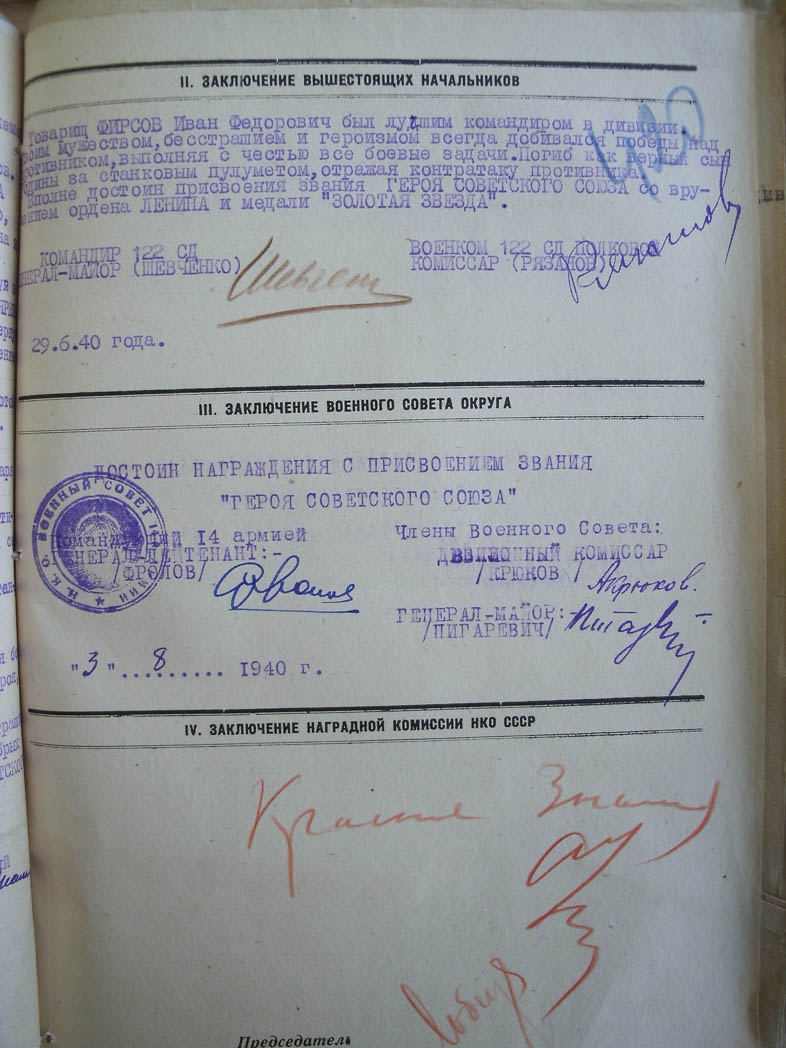 II. ЗАКЛЮЧЕНИЕ ВЫШЕСТОЯЩИХ НАЧАЛЬНИКОВ
Товарищ ФИРСОВ Иван Федорович был лучшим командиром в дивизии.
воим мужеством, бесстрашием и героизмом всегда добивался победы над
ротивником, выполняя с честью все боевые задачи. Погиб как верный сын
одины за станковым пулуметом, отражая контратаку противника.
Вполне достоин присвоения звания ГЕРОЯ СОВЕТСКОГО СОЮЗА со вру-
ением ордена ЛЕНИНА и медали "ЗОЛОТАЯ ЗВЕЗДА".
КОМАНДИР 122 СД
НЕРАЛ-МАЙОР (ШЕВЧЕНКО)
ВОЕНКОМ 122 СД ПОЛКОВОЙ
КОМИССАР (РЯЗАНОВ)
29.6.40 года.
III. ЗАКЛЮЧЕНИЕ ВОЕННОГО СОВЕТА ОКРУГА
ДОСТОИН НАГРАЖДЕНИЯ С ПРИСВОЕНИЕМ ЗВАНИЯ
"ГЕРОЯ СОВЕТСКОГО СОЮЗА"
Командующий 14 армией
ГЕНЕРАЛ-ЛЕЙТЕНАНТ:-
/ФРОЛОВ/
Члены Военного Совета:
ДИВИЗИОННЫЙ КОМИССАР
/КРЮКОВ / Акрюков.
ГЕНЕРАЛ-МАЙОР:
/ПИГАРЕВИЧ/
Н.К.О. ВОЕННЫЙ СОВЕТ
"3"...8...... 1940 г.
IV. ЗАКЛЮЧЕНИЕ НАГРАДНОЙ КОМИССИИ НКО СССР
Красное Знамя
Председатель